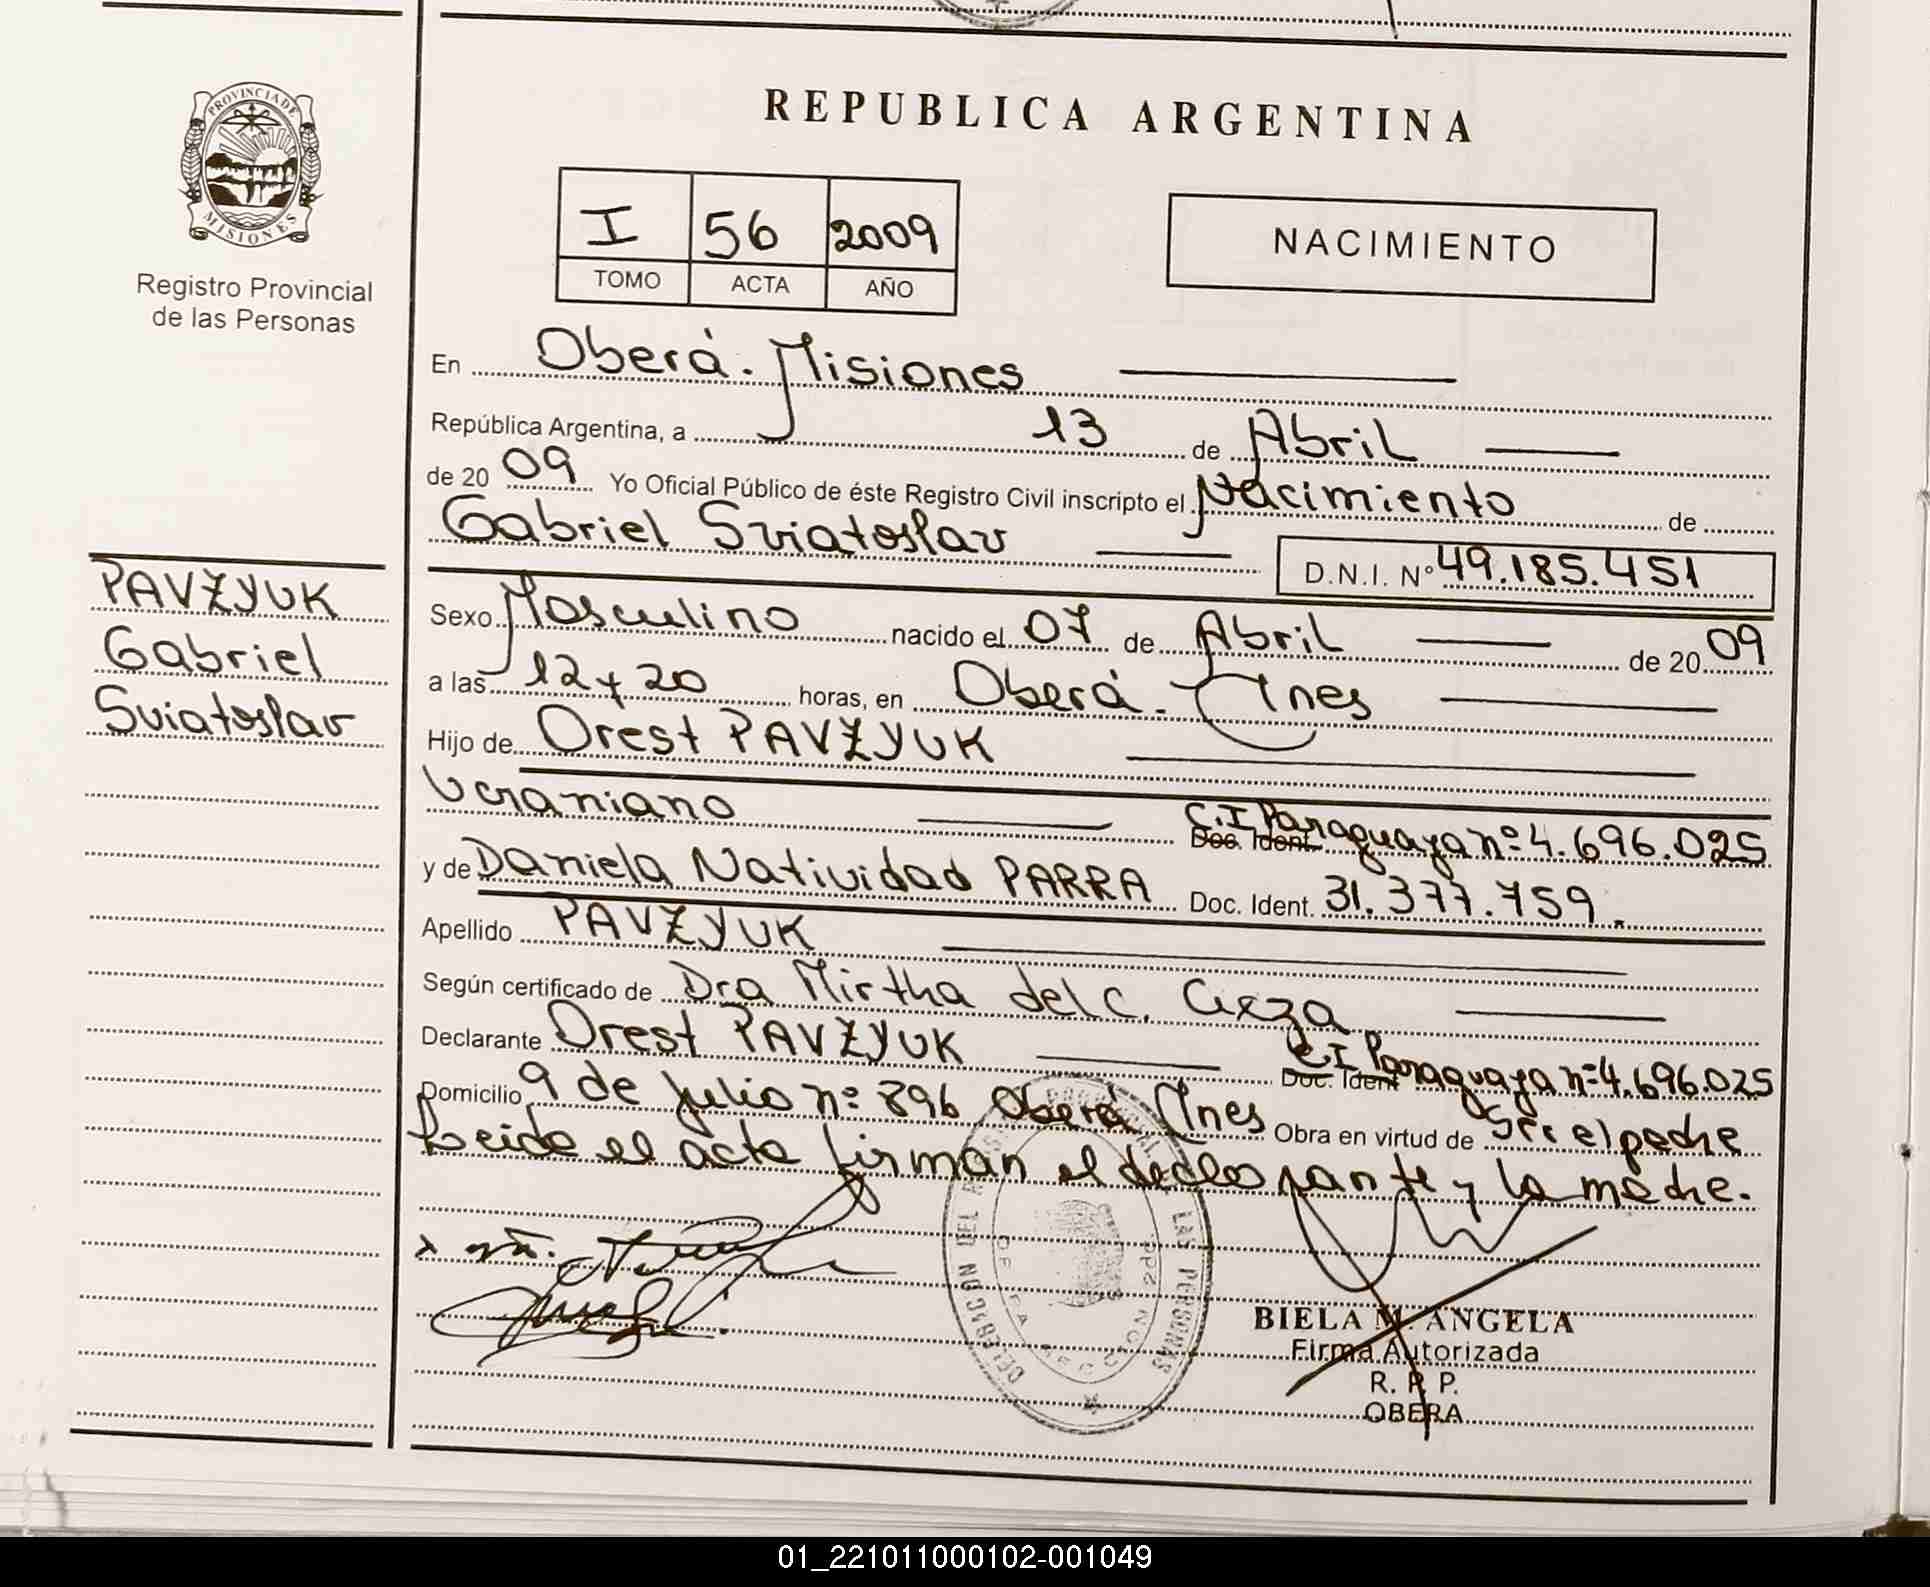 REPUBLICA ARGENTINA
PROVINCIA DE
MISIONES
Registro Provincial
de las Personas
I 56 2009
TOMO ACTA AÑO
NACIMIENTO
En Oberá. Misiones
República Argentina, a 13 de Abril
de 20 09 Yo Oficial Público de éste Registro Civil inscripto el Nacimiento de
Gabriel Sviatoslav
D.N.I. Nº 49.185.451
PAVZYUK
Gabriel
Sviatoslav
Sexo Masculino nacido el 07 de Abril de 20 09
a las 12 y 20 horas, en Oberá. Mnes
Hijo de Orest PAVZYUK
Ucraniano C.I Paraguaya nº 4.696.025
Doc. Ident.
y de Daniela Natividad PARRA Doc. Ident. 31.377.759.
Apellido PAVZYUK
Según certificado de Dra Mirtha del C.
Declarante Orest PAVZYUK C.I Paraguaya nº 4.696.025
Doc. Ident
Domicilio 9 de Julio nº 896 Oberá Mnes Obra en virtud de Ser el padre
Leida el acta firman el declarante y la madre.
BIELA M. ANGELA
Firma Autorizada
R. P. P.
OBERA
01_221011000102-001049